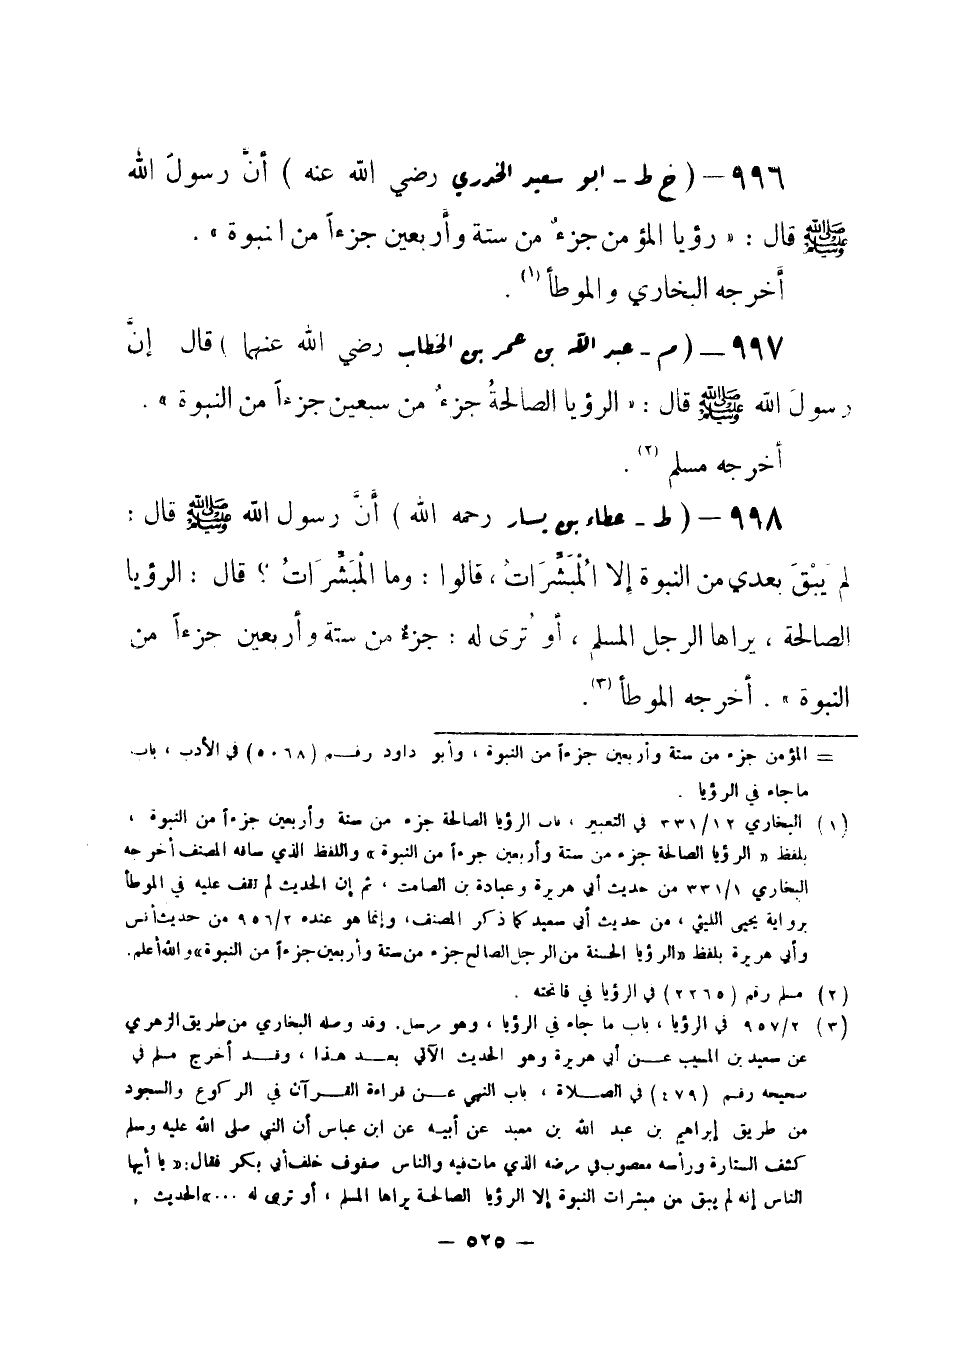 ٩٩٦ – ( خ ط - ابو سعيد الخدري رضي الله عنه ) أنَّ رسولَ الله
ﷺ قال : « رؤيا المؤمن جزءٌ من ستة وأربعين جزءاً من النبوة » .
أخرجه البخاري والموطأ (١) .
٩٩٧ – ( م - عبد الله بن عمر بن الخطاب رضي الله عنهما ) قال إنَّ
رسولَ الله ﷺ قال : « الرؤيا الصالحةُ جزءٌ من سبعين جزءاً من النبوة » .
أخرجه مسلم (٢) .
٩٩٨ – ( ط - عطاء بن يسار رحمه الله ) أنَّ رسول الله ﷺ قال :
لم يَبْقَ بعدي من النبوة إلا الْمُبَشِّرَاتُ ، قالوا : وما الْمُبَشِّرَاتُ ؟ قال : الرؤيا
الصالحة ، يراها الرجل المسلم ، أو تُرى له : جزءٌ من ستة وأربعين جزءاً من
النبوة » . أخرجه الموطأ (٣) .
= المؤمن جزء من ستة وأربعين جزءاً من النبوة ، وأبو داود رقم (٥٠٦٨) في الأدب ، باب
ماجاء في الرؤيا .
(١) البخاري ٣٣١/١٢ في التعبير ، باب الرؤيا الصالحة جزء من ستة وأربعين جزءاً من النبوة ،
بلفظ « الرؤيا الصالحة جزء من ستة وأربعين جزءاً من النبوة » واللفظ الذي ساقه المصنف أخرجه
البخاري ٣٣١/١ من حديث أبي هريرة وعبادة بن الصامت ، ثم إن الحديث لم نقف عليه في الموطأ
برواية يحيى الليثي ، من حديث أبي سعيد كما ذكر المصنف، وإنما هو عنده ٩٥٦/٢ من حديث أنس
وأبي هريرة بلفظ «الرؤيا الحسنة من الرجل الصالح جزء من ستة وأربعين جزءاً من النبوة» والله أعلم.
(٢) مسلم رقم (٢٢٦٥) في الرؤيا في فاتحته .
(٣) ٩٥٧/٢ في الرؤيا ، باب ما جاء في الرؤيا ، وهو مرسل. وقد وصله البخاري من طريق الزهري
عن سعيد بن المسيب عن أبي هريرة وهو الحديث الآتي بعد هذا ، وقد أخرج مسلم في
صحيحه رقم (٤٧٩) في الصلاة ، باب النهي عن قراءة القرآن في الركوع والسجود
من طريق إبراهيم بن عبد الله بن معبد عن أبيه عن ابن عباس أن النبي صلى الله عليه وسلم
كشف الستارة ورأسه معصوب في مرضه الذي مات فيه والناس صفوف خلف أبي بكر فقال: « يا أيها
الناس إنه لم يبق من مبشرات النبوة إلا الرؤيا الصالحة يراها المسلم ، أو ترى له ...» الحديث .
– ٥٢٥ –